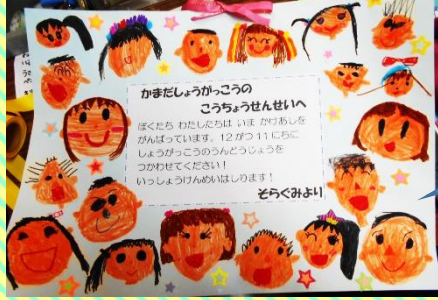 かまだしょうがっこうの
こうちょうせんせいへ
ぼくたち わたしたちは いま かけあしを
がんばっています。12がつ11にちに
しょうがっこうのうんどうじょうを
つかわせてください!
いっしょうけんめいはしります!
そらぐみより